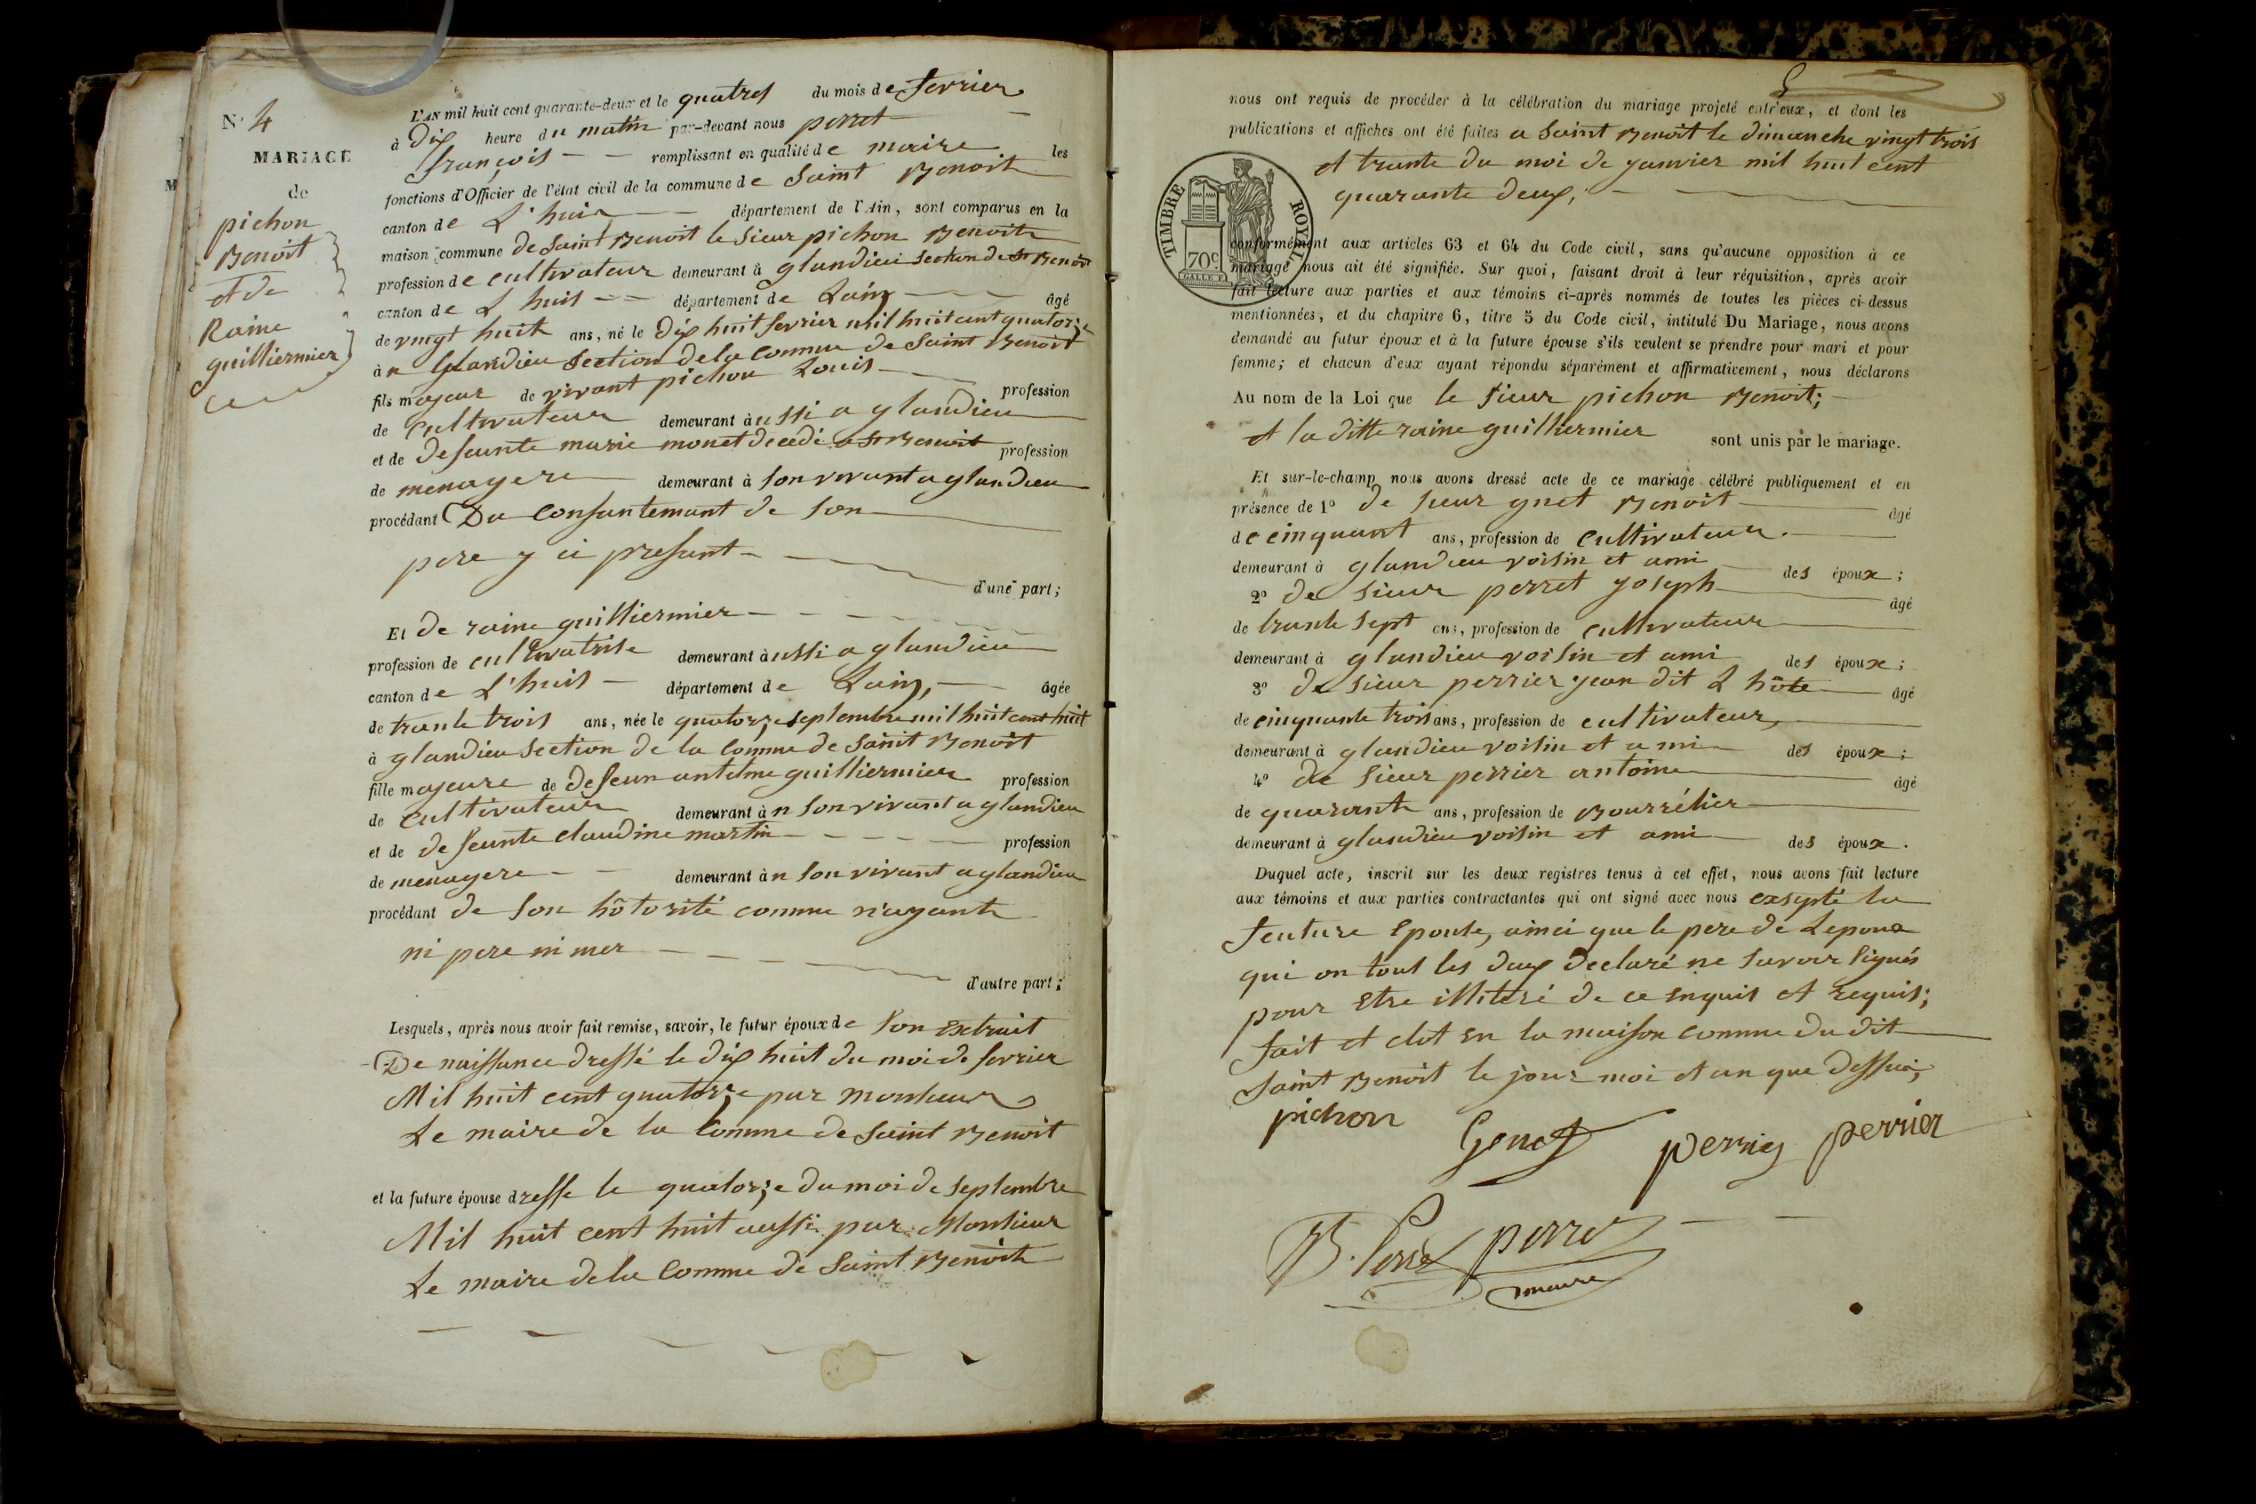 N° 4
MARIAGE
de
pichon
Benoit
et de
Raine
guilliermier
L'AN mil huit cent quarante-deux et le quatres du mois de fevrier
à Dix heure du matin par-devant nous perret
françois remplissant en qualité de maire les
fonctions d'Officier de l'état civil de la commune de Saint Benoit
canton de L'huis département de l'Ain, sont comparus en la
maison commune de Saint Benoit le Sieur pichon Benoit
profession de cultivateur demeurant à glandieu section de St Benoit
canton de L huis département de Lain âgé
de vingt huit ans, né le Dix huit fevrier mil huit cent quatorze
à n Glandieu Section de la Comme de Saint Benoit
fils majeur de vivant pichon Louis profession
de cultivateur demeurant à ussi a glandieu
et de defeunte marie monet decedé a St Benoit profession
de menagere demeurant à son vivant a glandieu
procédant Du Consantemant de son
pere y ci presant
d'une part;
Et de raine guilliermier
profession de cultivatrise demeurant à ussi a glandieu
canton de L'huis département de Lain, âgée
de trante trois ans, née le quatorze septembre mil huit cent huit
à glandieu section de la Comme de Saint Benoit
fille majeure de defeun antelme guilliermier profession
de cultivateur demeurant à n son vivant a glandieu
et de defeunte claudine martin profession
de menagere demeurant à n son vivant a glandieu
procédant de son hôtorité comme n'ayant
ni pere ni mer
d'autre part;
Lesquels, après nous avoir fait remise, savoir, le futur époux de son extrait
De naissance dressé le dix huit du moi de fevrier
Mil huit cent quatorze par monsieur
Le maire de la Comme de Saint Benoit
et la future épouse dresse le quatorze du moi de septembre
Mil huit cent huit aussi par Monsieur
Le maire de la Comme de Saint Benoit
5
nous ont requis de procéder à la célébration du mariage projeté entr'eux, et dont les
publications et affiches ont été faites a Saint Benoit le dimanche vingt trois
et trante du moi de janvier mil huit cent
quarante deux,
TIMBRE ROYAL
70c
conformément aux articles 63 et 64 du Code civil, sans qu'aucune opposition à ce
mariage nous ait été signifiée. Sur quoi, faisant droit à leur réquisition, après avoir
fait lecture aux parties et aux témoins ci-après nommés de toutes les pièces ci-dessus
mentionnées, et du chapitre 6, titre 5 du Code civil, intitulé Du Mariage, nous avons
demandé au futur époux et à la future épouse s'ils veulent se prendre pour mari et pour
femme; et chacun d'eux ayant répondu séparément et affirmativement, nous déclarons
Au nom de la Loi que le sieur pichon Benoit;
et la ditte raine guilliermier sont unis par le mariage.
Et sur-le-champ nous avons dressé acte de ce mariage célébré publiquement et en
présence de 1° de sieur gnet Benoit âgé
de cinquant ans, profession de cultivateur.
demeurant à glandieu voisin et ami des époux;
2° de sieur perret joseph âgé
de trante sept ans, profession de cultivateur
demeurant à glandieu voisin et ami des époux;
3° de sieur perrier jean dit L hôte âgé
de cinquante trois ans, profession de cultivateur,
demeurant à glandieu voisin et ami des époux;
4° de sieur perrier antoine âgé
de quarante ans, profession de Bourrélier
demeurant à glandieu voisin et ami des époux.
Duquel acte, inscrit sur les deux registres tenus à cet effet, nous avons fait lecture
aux témoins et aux parties contractantes qui ont signé avec nous exsepté la
feuture Epouse, ainci que le pere de Lepoux
qui on tous les deux declaré ne savoir signés
pour Etre illiteré de ce enquis et requis;
fait et clot en la maison comme du dit
Saint Benoit le jour moi et an que dessus,
pichon Genet perrier perrier
perret
maire